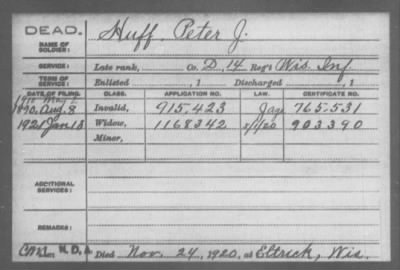 DEAD.
NAME OF SOLDIER:
Huff, Peter J.
SERVICE:
Late rank, Co. D, 14 Reg't Wis. Inf
TERM OF SERVICE:
Enlisted , 1 Discharged , 1
DATE OF FILING. CLASS. APPLICATION NO. LAW. CERTIFICATE NO.
1890, Aug. 8 Invalid, 915.423 765.531
1921 Jan 13 Widow, 1168342 5/1/20 903390
Minor,
ADDITIONAL SERVICES:
REMARKS:
Died Nov. 24, 1920, at Ettrick, Wis.